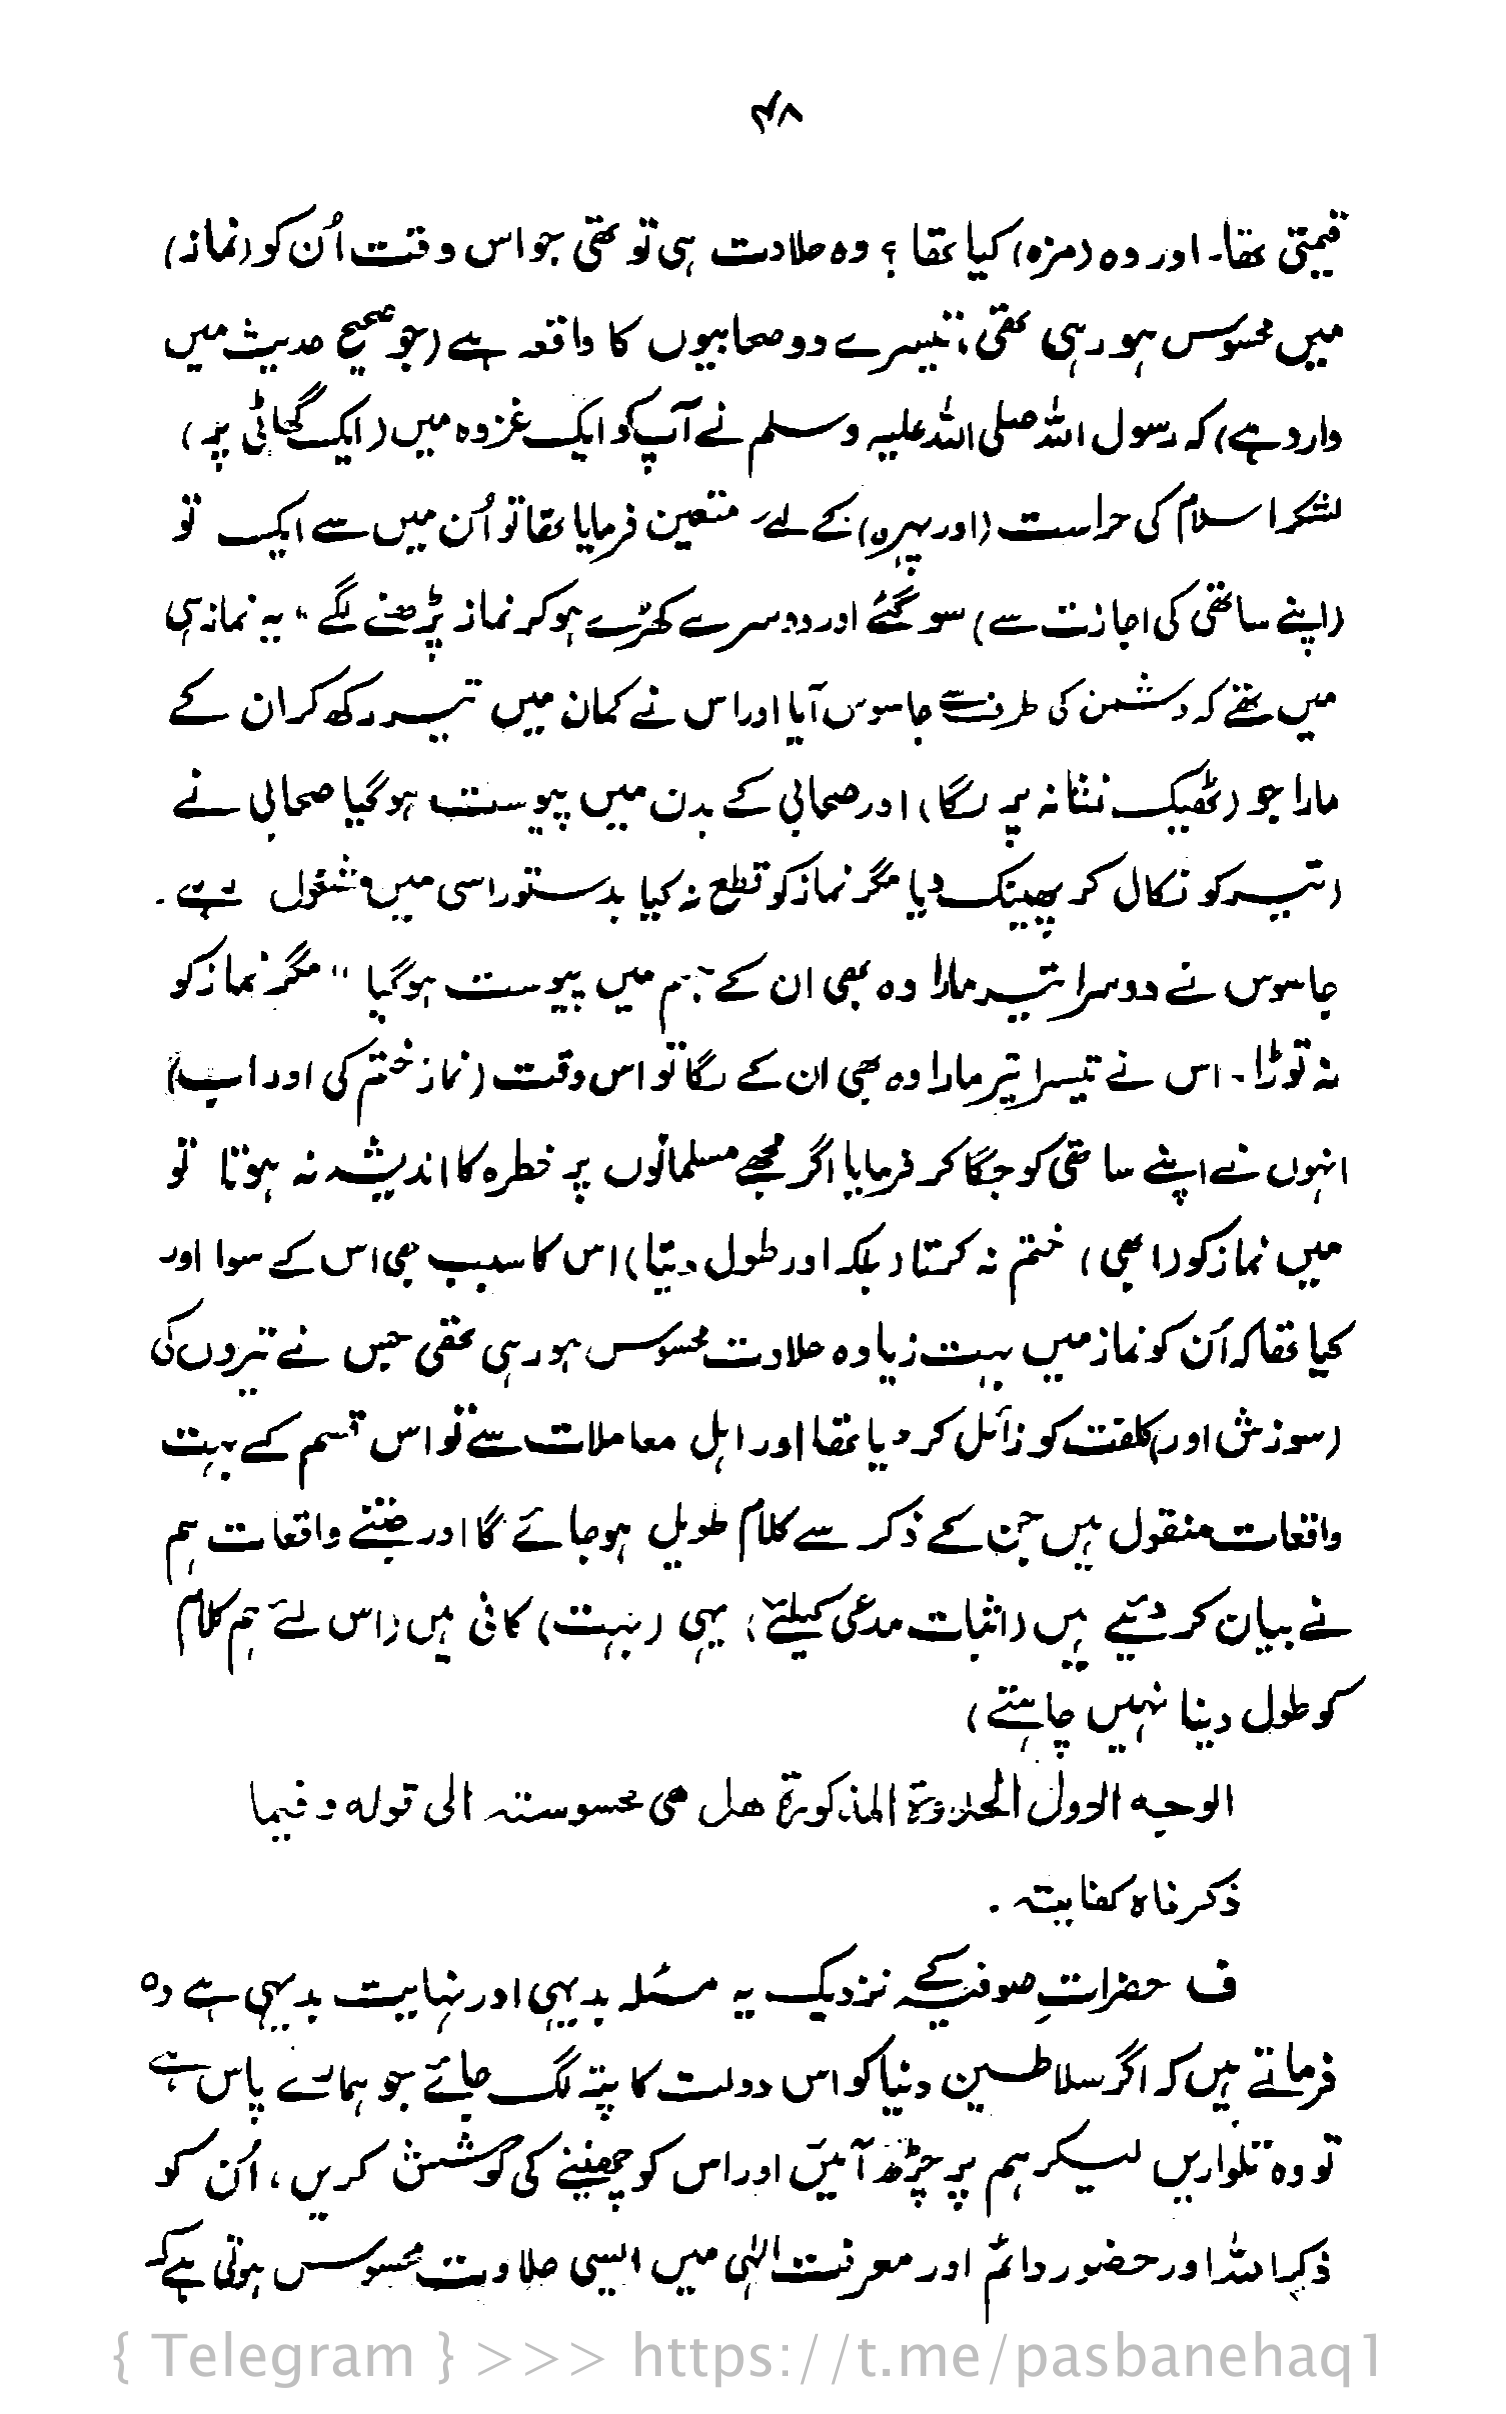 ۴۸
قیمتی تھا۔ اور وہ (مزہ) کیا تھا ؟ وہ حلاوت ہی تو تھی جو اس وقت اُن کو (نماز)
میں محسوس ہو رہی تھی، تیسرے دو صحابیوں کا واقعہ ہے (جو صحیح حدیث میں
وارد ہے) کہ رسول اللہ صلی اللہ علیہ وسلم نے آپ کو ایک غزوہ میں (ایک گھاٹی پر)
لشکر اسلام کی حراست (اور پہرہ) کے لئے متعین فرمایا تھا تو اُن میں سے ایک تو
(اپنے ساتھی کی اجازت سے) سو گئے اور دوسرے کھڑے ہو کر نماز پڑھنے لگے، یہ نماز ہی
میں تھے کہ دشمن کی طرف سے جاسوس آیا اور اس نے کمان میں تیر رکھ کر ان کے
مارا جو (ٹھیک نشانہ پر لگا) اور صحابی کے بدن میں پیوست ہو گیا صحابی نے
(تیر کو نکال کر پھینک دیا مگر نماز کو قطع نہ کیا بدستور اسی میں مشغول رہے۔
جاسوس نے دوسرا تیر مارا وہ بھی ان کے جسم میں پیوست ہو گیا" مگر نماز کو
نہ توڑا۔ اس نے تیسرا تیر مارا وہ بھی ان کے لگا تو اس وقت (نماز ختم کی اور اب)
انہوں نے اپنے ساتھی کو جگا کر فرمایا اگر مجھے مسلمانوں پر خطرہ کا اندیشہ نہ ہوتا تو
میں نماز کو (ابھی) ختم نہ کرتا (بلکہ اور طول دیتا) اس کا سبب بھی اس کے سوا اور
کیا تھا کہ اُن کو نماز میں بہت زیادہ حلاوت محسوس ہو رہی تھی جس نے تیروں کی
(سوزش اور) کلفت کو زائل کر دیا تھا اور اہل معاملات سے تو اس قسم کے بہت
واقعات منقول ہیں جن کے ذکر سے کلام طویل ہو جائے گا اور جتنے واقعات ہم
نے بیان کر دئیے ہیں (اثبات مدعی کیلئے) یہی (بہت) کافی ہیں (اس لئے ہم کلام
کو طول دینا نہیں چاہتے)
الوجہ الاول الحلاوۃ المذکورۃ ھل ھی محسوستہ الی قولہ و فیما
ذکرناہ کفایتہ ۔
ف حضراتِ صوفیہ کے نزدیک یہ مسئلہ بدیہی اور نہایت بدیہی ہے وہ
فرماتے ہیں کہ اگر سلاطین دنیا کو اس دولت کا پتہ لگ جائے جو ہمارے پاس ہے
تو وہ تلواریں لیکر ہم پر چڑھ آئیں اور اس کو چھیننے کی کوشش کریں، اُن کو
ذکر اللہ اور حضور دائم اور معرفت الٰہی میں ایسی حلاوت محسوس ہوتی ہے کہ
{ Telegram } >>> https://t.me/pasbanehaq1